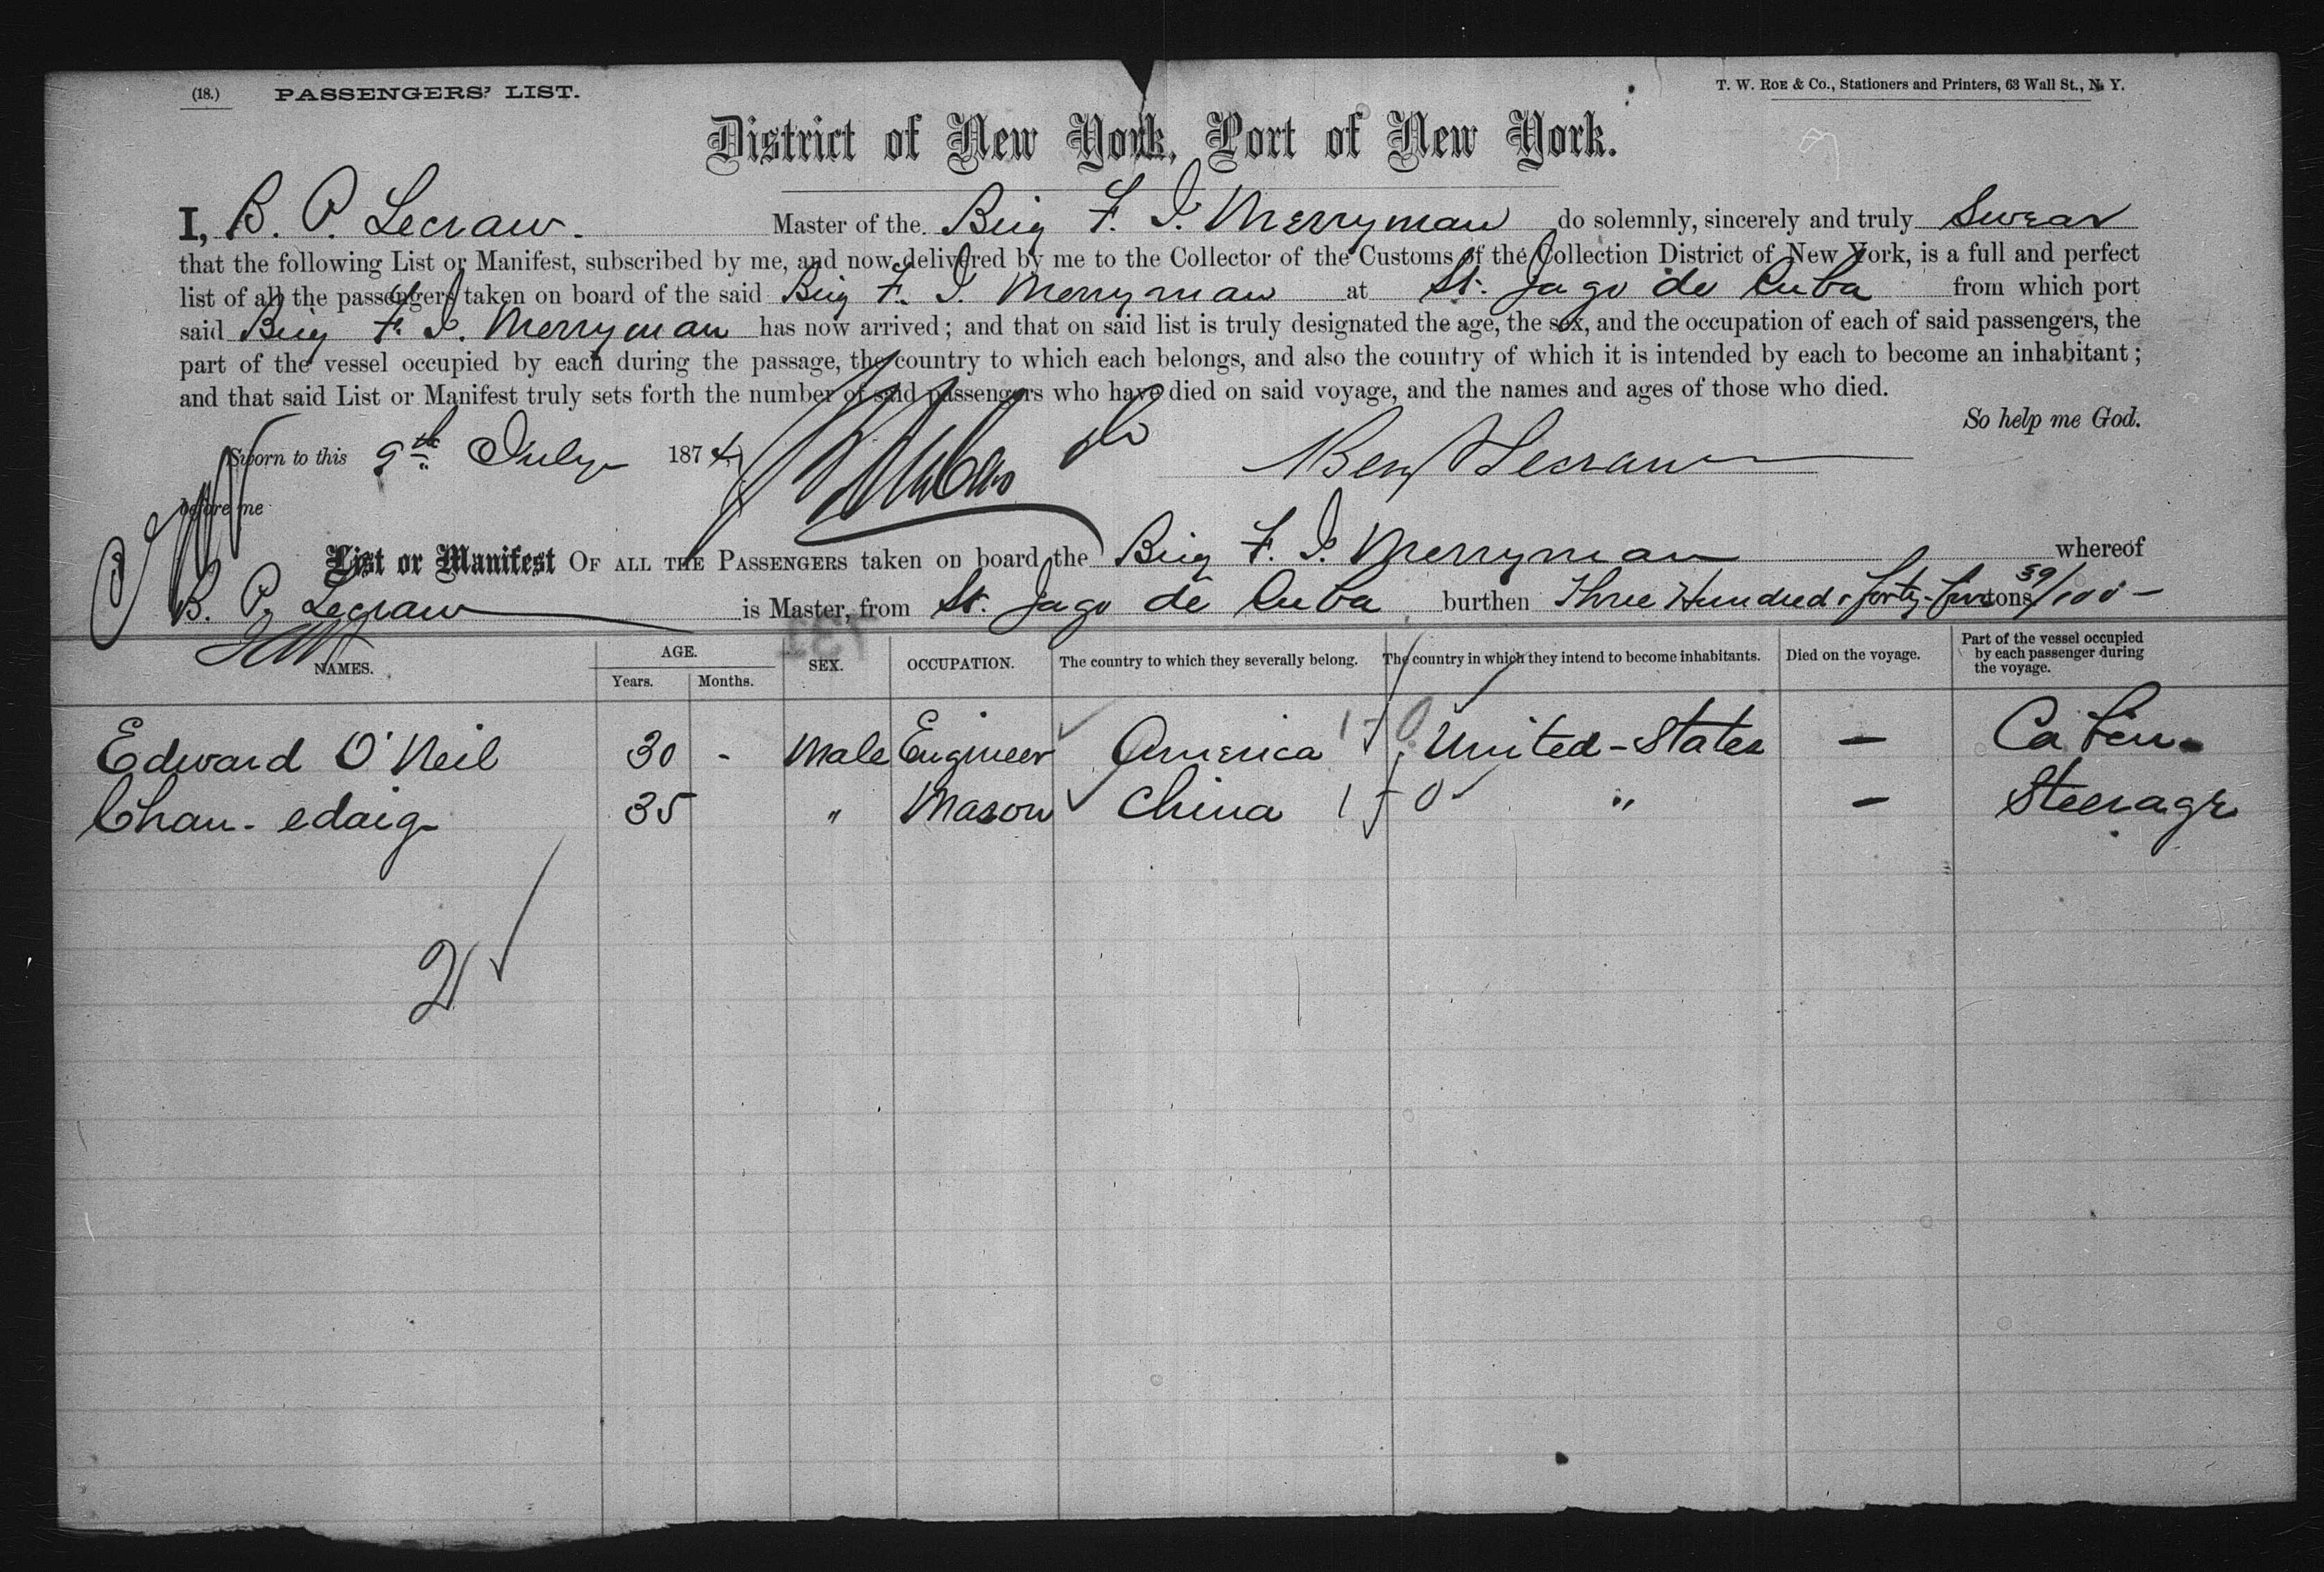 (18.) PASSENGERS' LIST. T. W. ROE & Co., Stationers and Printers, 63 Wall St., N. Y.
District of New York, Port of New York.
I, B. P. Lecraw. Master of the Brig F. I. Merryman do solemnly, sincerely and truly Swear
that the following List or Manifest, subscribed by me, and now delivered by me to the Collector of the Customs of the Collection District of New York, is a full and perfect
list of all the passengers taken on board of the said Brig F. I. Merryman at St. Jago de Cuba from which port
said Brig F. I. Merryman has now arrived; and that on said list is truly designated the age, the sex, and the occupation of each of said passengers, the
part of the vessel occupied by each during the passage, the country to which each belongs, and also the country of which it is intended by each to become an inhabitant;
and that said List or Manifest truly sets forth the number of said passengers who have died on said voyage, and the names and ages of those who died.
So help me God.
Sworn to this 9th July 1874 Benj Lecraw
before me
List or Manifest OF ALL THE PASSENGERS taken on board the Brig F. I. Merryman whereof
B. P. Lecraw is Master, from St. Jago de Cuba burthen Three Hundred & forty-five tons 59/100 -
NAMES. AGE. Years. Months. SEX. OCCUPATION. The country to which they severally belong. The country in which they intend to become inhabitants. Died on the voyage. Part of the vessel occupied by each passenger during the voyage.
Edward O'Neil 30 - Male Engineer America United-States - Cabin.
Chan-edaig 35 " Mason China " - Steerage
2